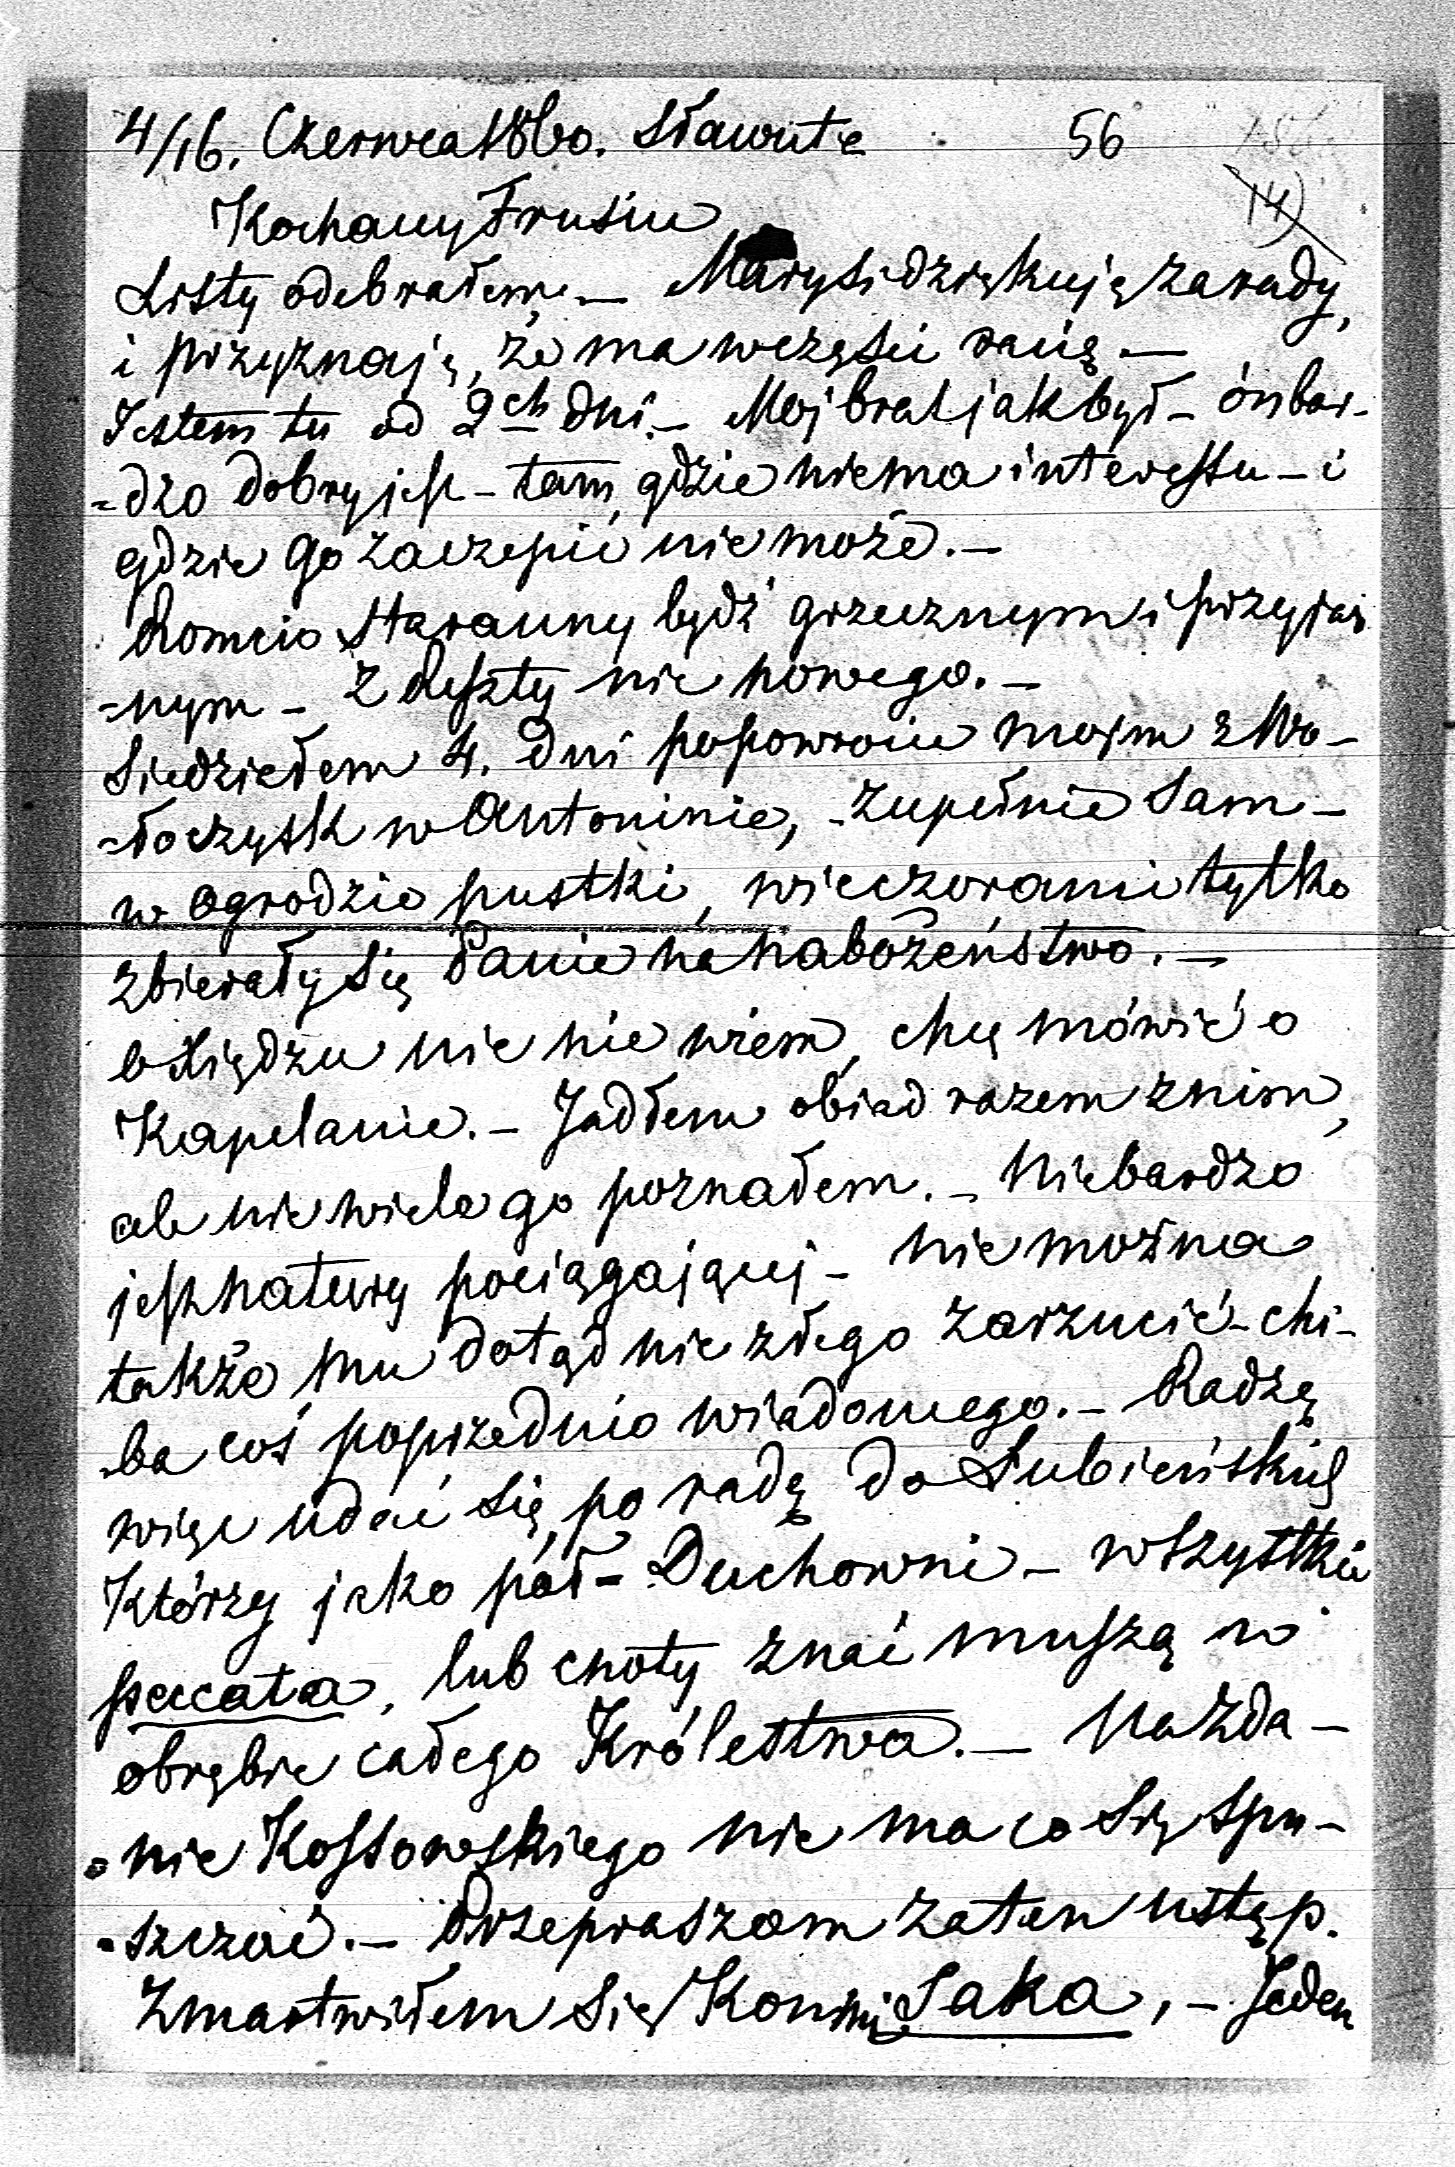 4/16. Czerwca 1860. Sławuta 56
14)
Kochany Frusiu
Listy odebrałem, – Marysi dziękuję za rady,
i przyznaję, że ma w częsci racię –
Jestem tu od 2ch dni. – Moj brat jak był – ón bar-
-dzo dobry jest – tam, gdzie niema interessu – i
gdzie go zaczepić nie może. –
Romcio Staranny bydź grzecznym i przyjaź
-nym – z Reszty nic nowego. –
Siedziałem 4. dni po powrocie moim z Wo-
-łoczysk w Antoninie, – zupełnie Sam –
w ogrodzie pustki, wieczorami tylko
zbierały się Panie na nabożeństwo. –
o Xiędzu nic nie wiem, chcę mówić o
Kapelanie. – Jadłem obiad razem z nim,
ale nie wiele go poznałem. – Nie bardzo
jest natury pociągającej – nie można
także mu dotąd nic złego zarzucić – chi-
-ba coś poprzednio wiadomego. – Radzę
więc udać się po radę do Łubieńskich
Którzy jako pół-Duchowni – wszystkie
peccata, lub cnoty znać muszą w
obrębie całego Królestwa. – Na zda –
-nie Kossowskiego nie ma co się spu-
-szczać. – Przepraszam za ten ustęp.
Zmartwiłem się Końmi Saka, – Jeden